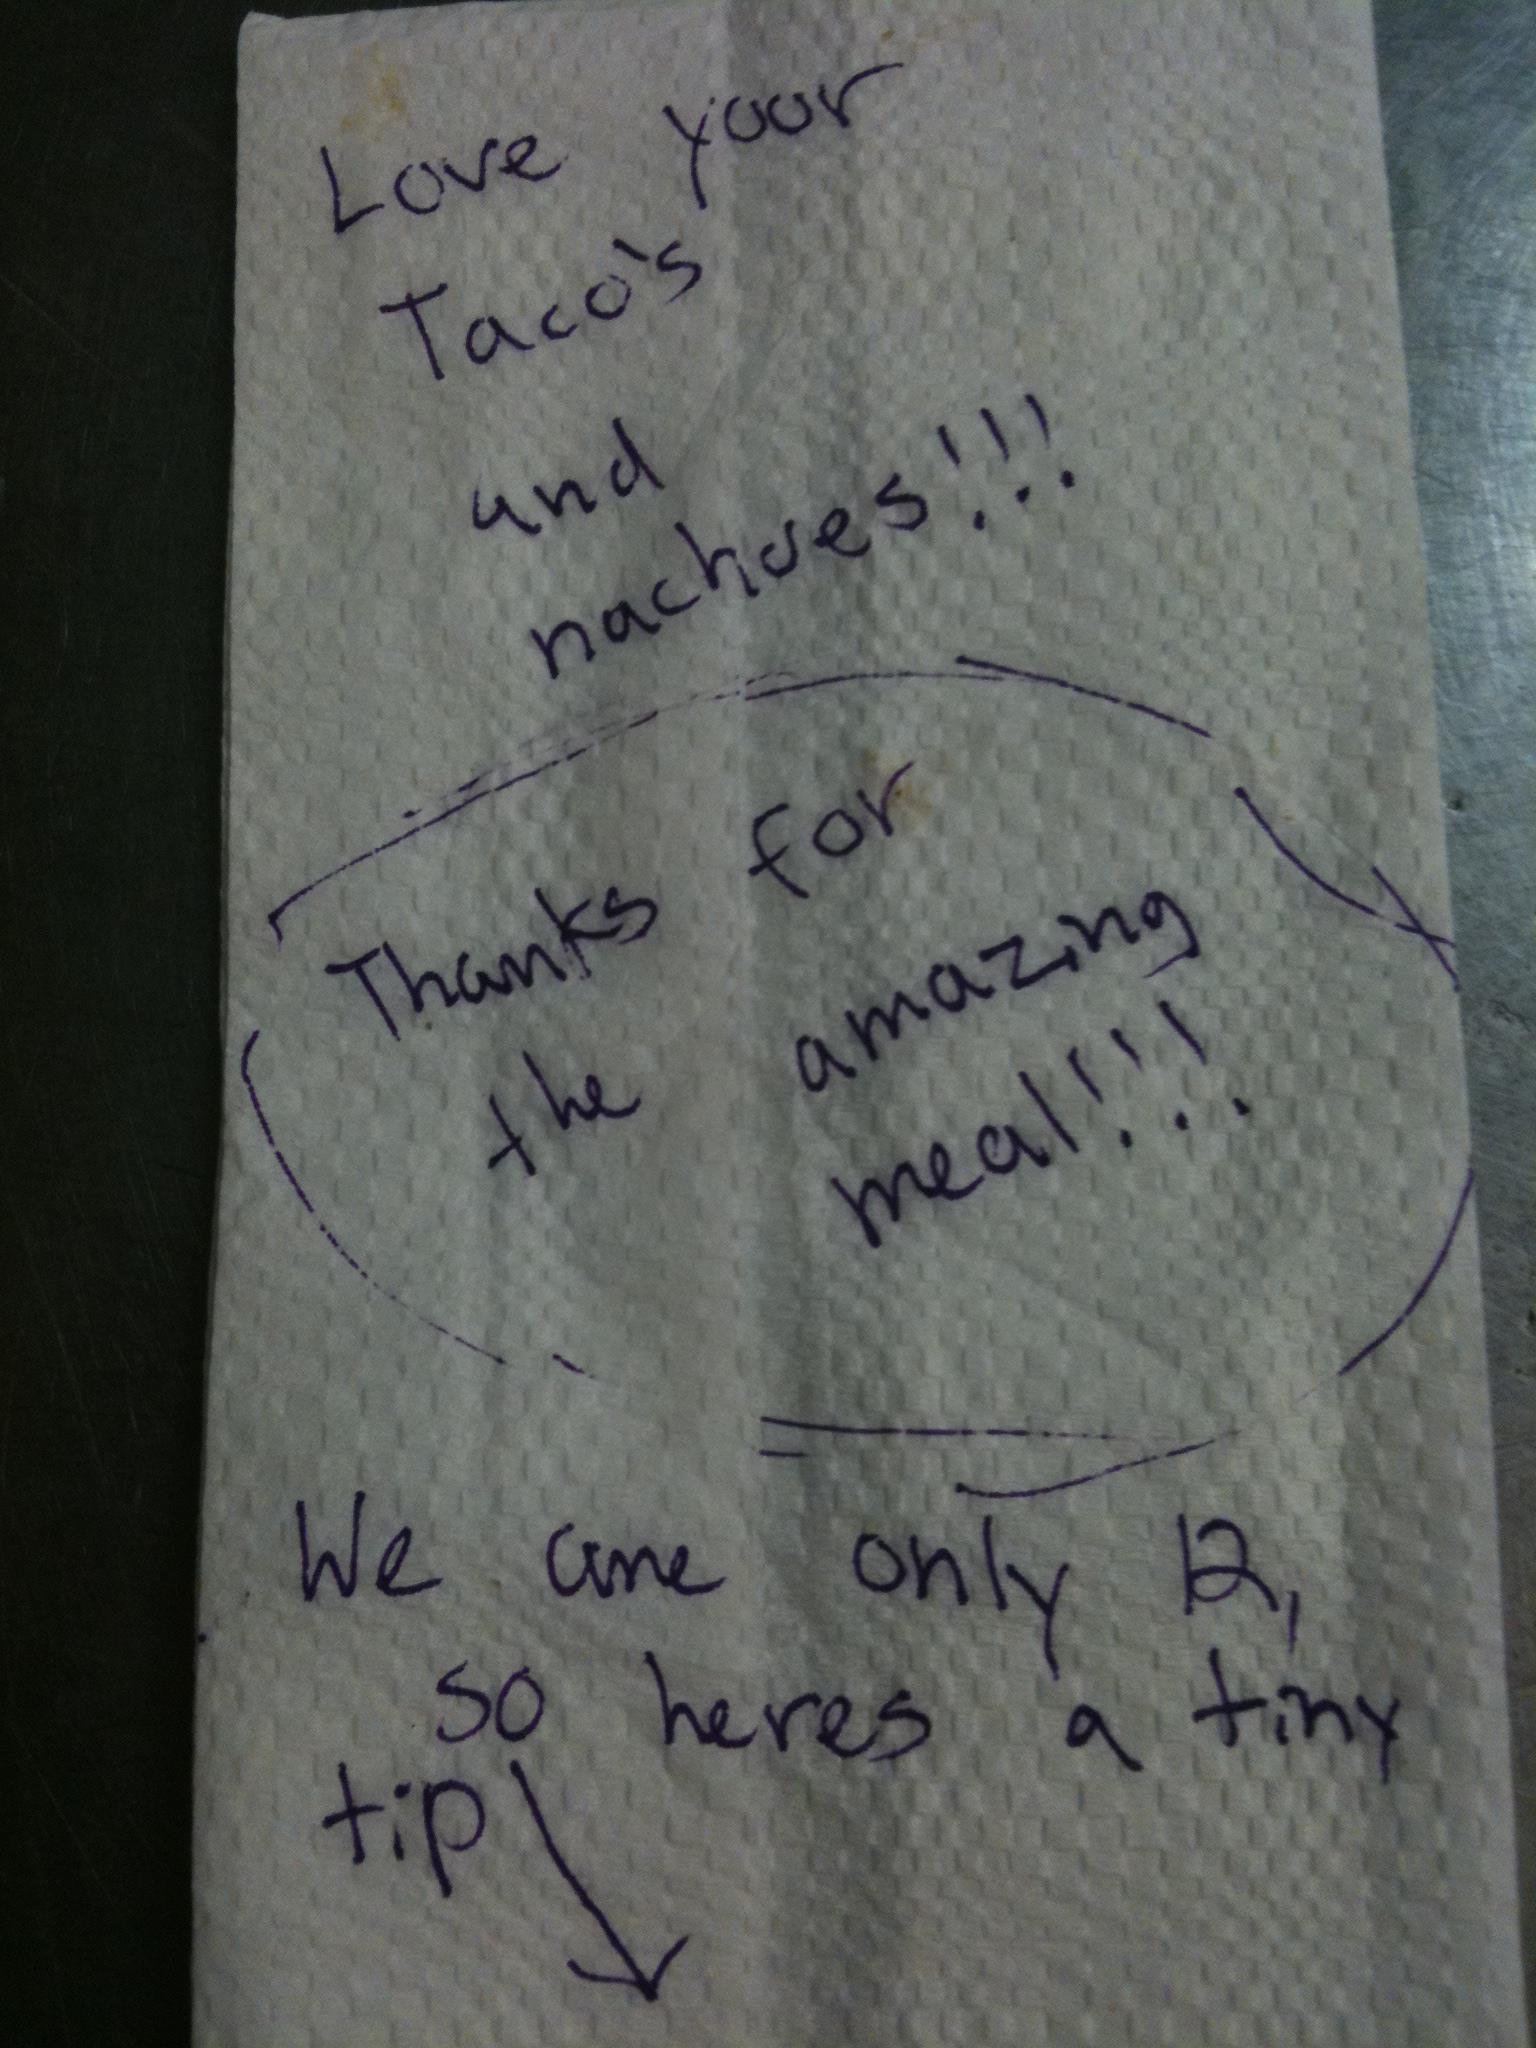 Love your
Taco's
and
nachoes!!!
Thanks for
the amazing
meal!!!
We are only 12,
so heres a tiny
tip